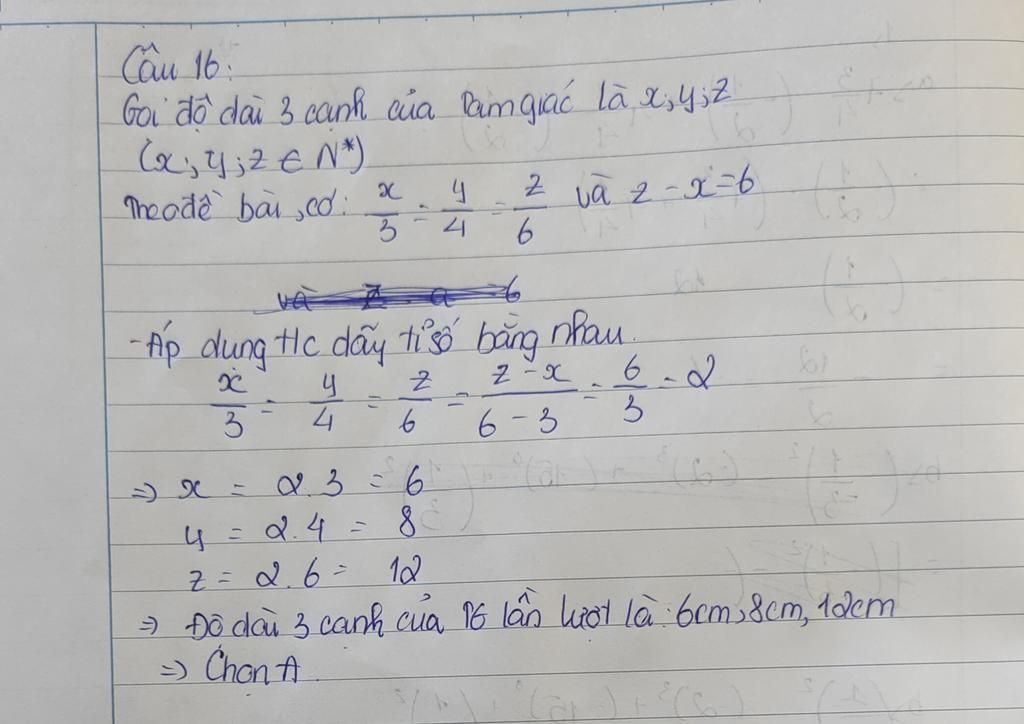 Câu 16:
Gọi độ dài 3 cạnh của tam giác là x; y; z
(x; y; z ∈ N*)
Theo đề bài, có: x/3 = y/4 = z/6 và z - x = 6
- Áp dụng t/c dãy tỉ số bằng nhau.
x/3 = y/4 = z/6 = (z - x)/(6 - 3) = 6/3 = 2
=> x = 2.3 = 6
y = 2.4 = 8
z = 2.6 = 12
=> Độ dài 3 cạnh của TG lần lượt là: 6cm, 8cm, 12cm
=> Chọn A.